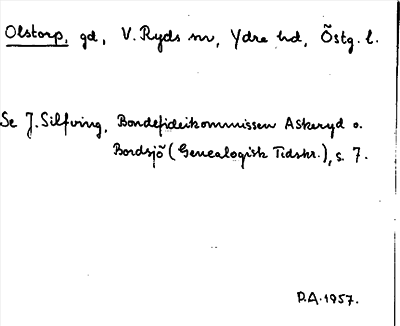 Olstorp, gd, V. Ryds sn, Ydre hd, Östg. l.
Se J. Silfving, Bondefideikommissen Askeryd o.
Bordsjö (Genealogisk Tidskr.), s. 7.
D.A. 1957.